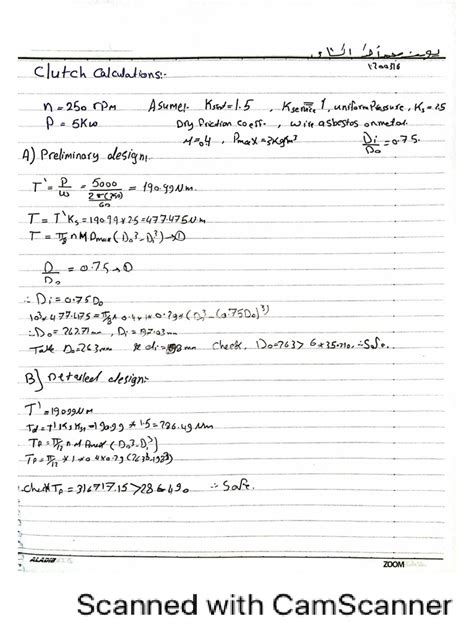 1200516
Clutch Calculations:-
n = 250 rPM Asume:- Kstat = 1.5 , Kservice = 1 , uniform Pressure , Ks = 2.5
P = 5Kw Dry friction coeff. , wire asbestos on metal
M = 0.4 , Pmax = 3 Kg/cm² Di/Do = 0.75
A) Preliminary design:
T' = P/ω = 5000 / (2π(250)/60) = 190.99 Nm
T = T' Ks = 190.99 * 2.5 = 477.475 Nm
T = π/8 n M Pmax (Do³ - Di³) → ①
D/Do = 0.75 →
∴ Di = 0.75 Do
∴ Do = 262.71 mm , Di = 197.03 mm
Take Do = 263 mm & di = 198 mm check,
B) Detailed design:-
T' = 190.99 Nm
Td = T' Ks = 190.99 * 1.5 = 286.49 Nm
Tp = π/12 n M Pmax (Do³ - Di³)
Tp = π/12 * 1 * 0.4 * 0.29 (263³ - 198³)
Check Tp = 316717.15 > 286490 ∴ Safe.
ALADIB ZOOM
Scanned with CamScanner